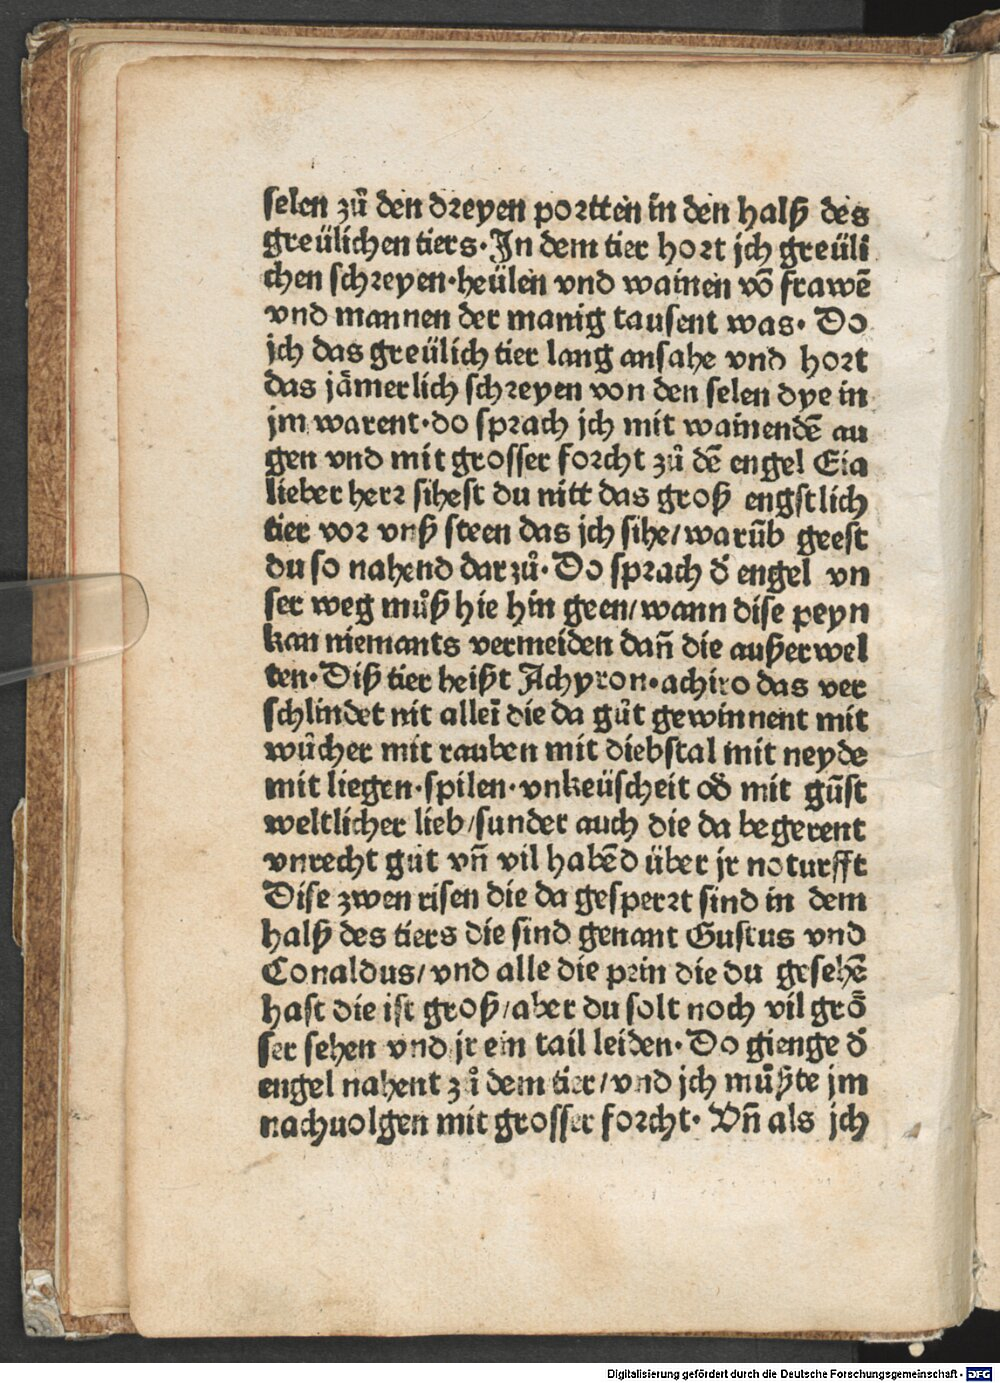 selen zů den dreyen portten in den halß des
greülichen tiers·In dem tier hort jch greüli
chen schreyen·heülen vnd wainen võ frawē
vnd mannen der manig tausent was· Do
jch das greülich tier lang ansahe vnd hort
das jämerlich schreyen von den selen dye in
jm warent·do sprach jch mit wainendē au
gen vnd mit grosser forcht zů dē engel Eia
lieber herr sihest du nitt das groß engstlich
tier vor vnß steen das jch sihe/warūb geest
du so nahend dar zů·Do sprach d̛ engel vn
ser weg můß hie hin geen/wann dise peyn
kan niemants vermeiden dañ die außerwel
ten·Diß tier heißt Achyron·achiro das ver
schlindet nit alleī die da gůt gewinnent mit
wůcher mit rauben mit diebstal mit neyde
mit liegen·spilen·vnkeüscheit od̛ mit gūst
weltlicher lieb/sunder auch die da begerent
vnrecht gůt vñ vil habēd über jr noturfft
Dise zwen risen die da gesperrt sind in dem
halß des tiers die sind genant Gustus vnd
Conaldus/vnd alle die pein die du gesehē
hast die ist groß/aber du solt noch vil grö
ser sehen vnd jr ein tail leiden·Do gienge d̛
engel nahent zů dem tier/vnd jch můßte jm
nachuolgen mit grosser forcht· Vñ als jch
Digitalisierung gefördert durch die Deutsche Forschungsgemeinschaft - DFG